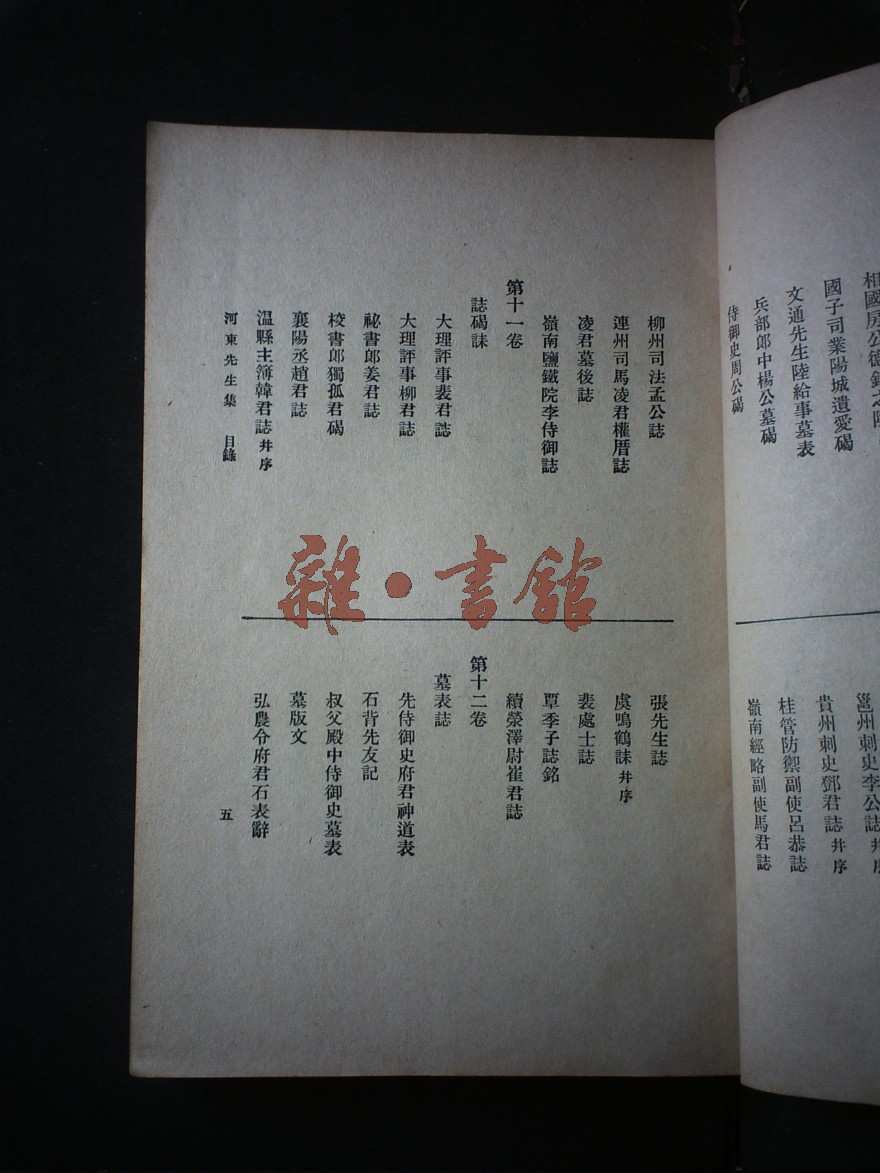 相國房公德銘之陰
國子司業陽城遺愛碣
文通先生陸給事墓表
兵部郎中楊公墓碣
侍御史周公碣
邕州刺史李公誌并序
貴州刺史鄧君誌并序
桂管防禦副使呂恭誌
嶺南經略副使馬君誌
柳州司法孟公誌
連州司馬凌君權厝誌
凌君墓後誌
嶺南鹽鐵院李侍御誌
第十一卷
誌碣誄
大理評事裴君誌
大理評事柳君誌
祕書郎姜君誌
校書郎獨孤君碣
襄陽丞趙君誌
溫縣主簿韓君誌并序
張先生誌
虞鳴鶴誄并序
裴處士誌
覃季子誌銘
續滎澤尉崔君誌
第十二卷
墓表誌
先侍御史府君神道表
石背先友記
叔父殿中侍御史墓表
墓版文
弘農令府君石表辭
河東先生集 目錄
五
雜·書館